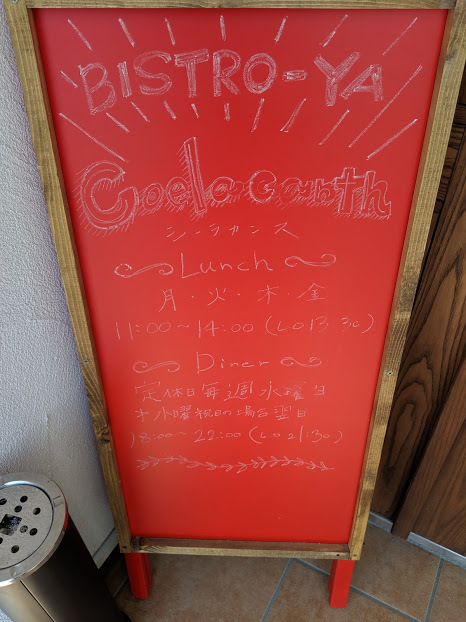 BISTRO-YA
Coelacanth
シーラカンス
Lunch
月・火・木・金
11:00~14:00 (L013:30)
Diner
定休日毎週水曜日
水曜祝日の場合翌日
18:00~22:00 (L021:30)